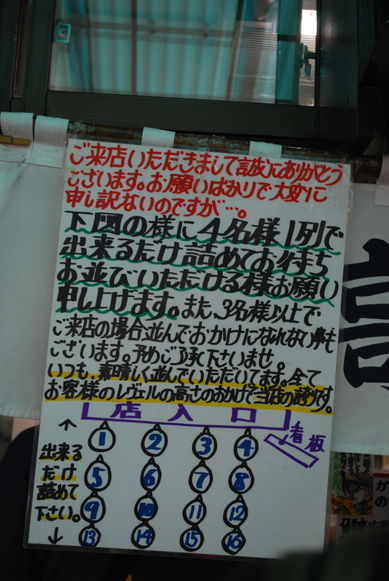 ご来店いただきまして誠にありがとう
ございます。お願いばかりで大変に
申し訳ないのですが…。
下図の様に4名様1列で
出来るだけ詰めてお待ち
お並びいただける様お願い
申し上げます。また、3名様以上で
ご来店の場合並んでおかけになれない事も
ございます。予めご了承下さいませ
いつも、素晴しく並んでいただいてます。全て
お客様のレヴェルの高さのおかげで当店の誇りです。
店入口
看板
↑
出来る
だけ
詰めて
下さい。
↓
1 2 3 4
5 6 7 8
9 10 11 12
13 14 15 16